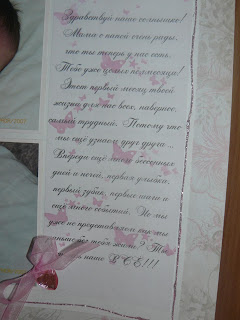 Здравствуй наше солнышко!
Мама с папой очень рады,
что ты теперь у нас есть.
Тебе уже целых полмесяца!
Этот первый месяц твоей
жизни для нас всех, наверное,
самый трудный. Потому что
мы ещё узнаем друг друга...
Впереди ещё много бессонных
дней и ночей, первая улыбка,
первый зубик, первые шаги и
ещё много событий. Но мы
уже не представляем как мы
раньше без тебя жили? Ты
наше ВСЁ!!!
2007